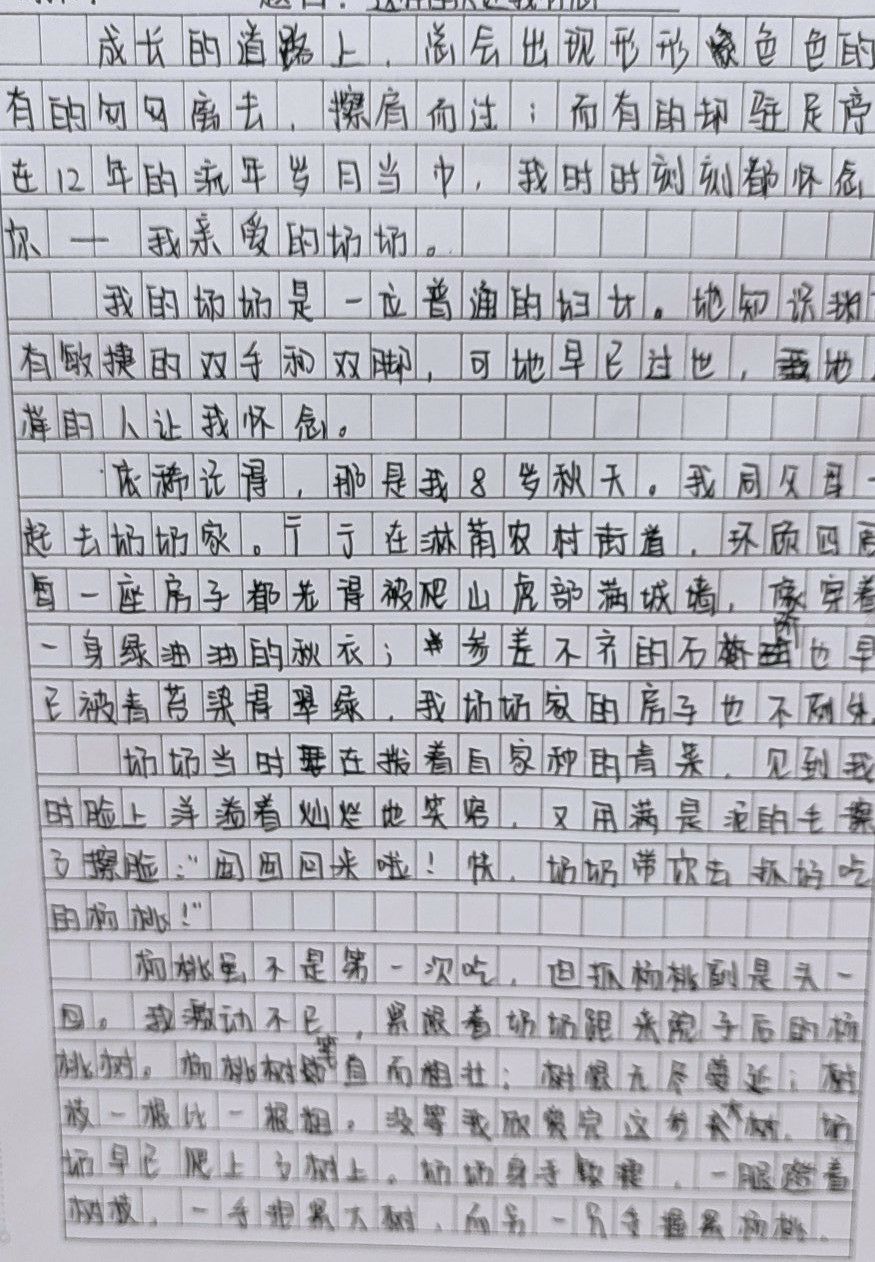 题目：这样的人让我怀念
成长的道路上，总会出现形形色色的
有的匆匆离去，擦肩而过；而有的却驻足停
在12年的流年岁月当中，我时时刻刻都怀念
你——我亲爱的奶奶。
我的奶奶是一位普通的妇女。她知识
有敏捷的双手和双脚，可她早已过世，她
样的人让我怀念。
依稀记得，那是我8岁秋天。我同父母一
起去奶奶家。行于在淋菌农村街道，环顾四周
每一座房子都光得被爬山虎部满城墙，像穿着
一身绿油油的秋衣；参差不齐的石阶也早
已被青苔染得翠绿，我奶奶家的房子也不例外
奶奶当时在拨着自家种的青菜，见到我
时脸上洋溢着灿烂地笑容，又用满是泥的毛擦
了擦脸：“囡囡回来啦！快，奶奶带你去抓好吃
的杨桃！”
杨桃虽不是第一次吃，但抓杨桃到是头一
回。我激动不已，紧跟着奶奶跑来院子后的杨
桃树。杨桃树笔直而粗壮；树根无尽蔓延；树
枝一根比一根粗。没等我欣赏完这参天大树，奶
奶早已爬上了树上。奶奶身手敏捷，一脚蹬着
树枝，一手抱紧大树，而另一只手握紧杨桃，